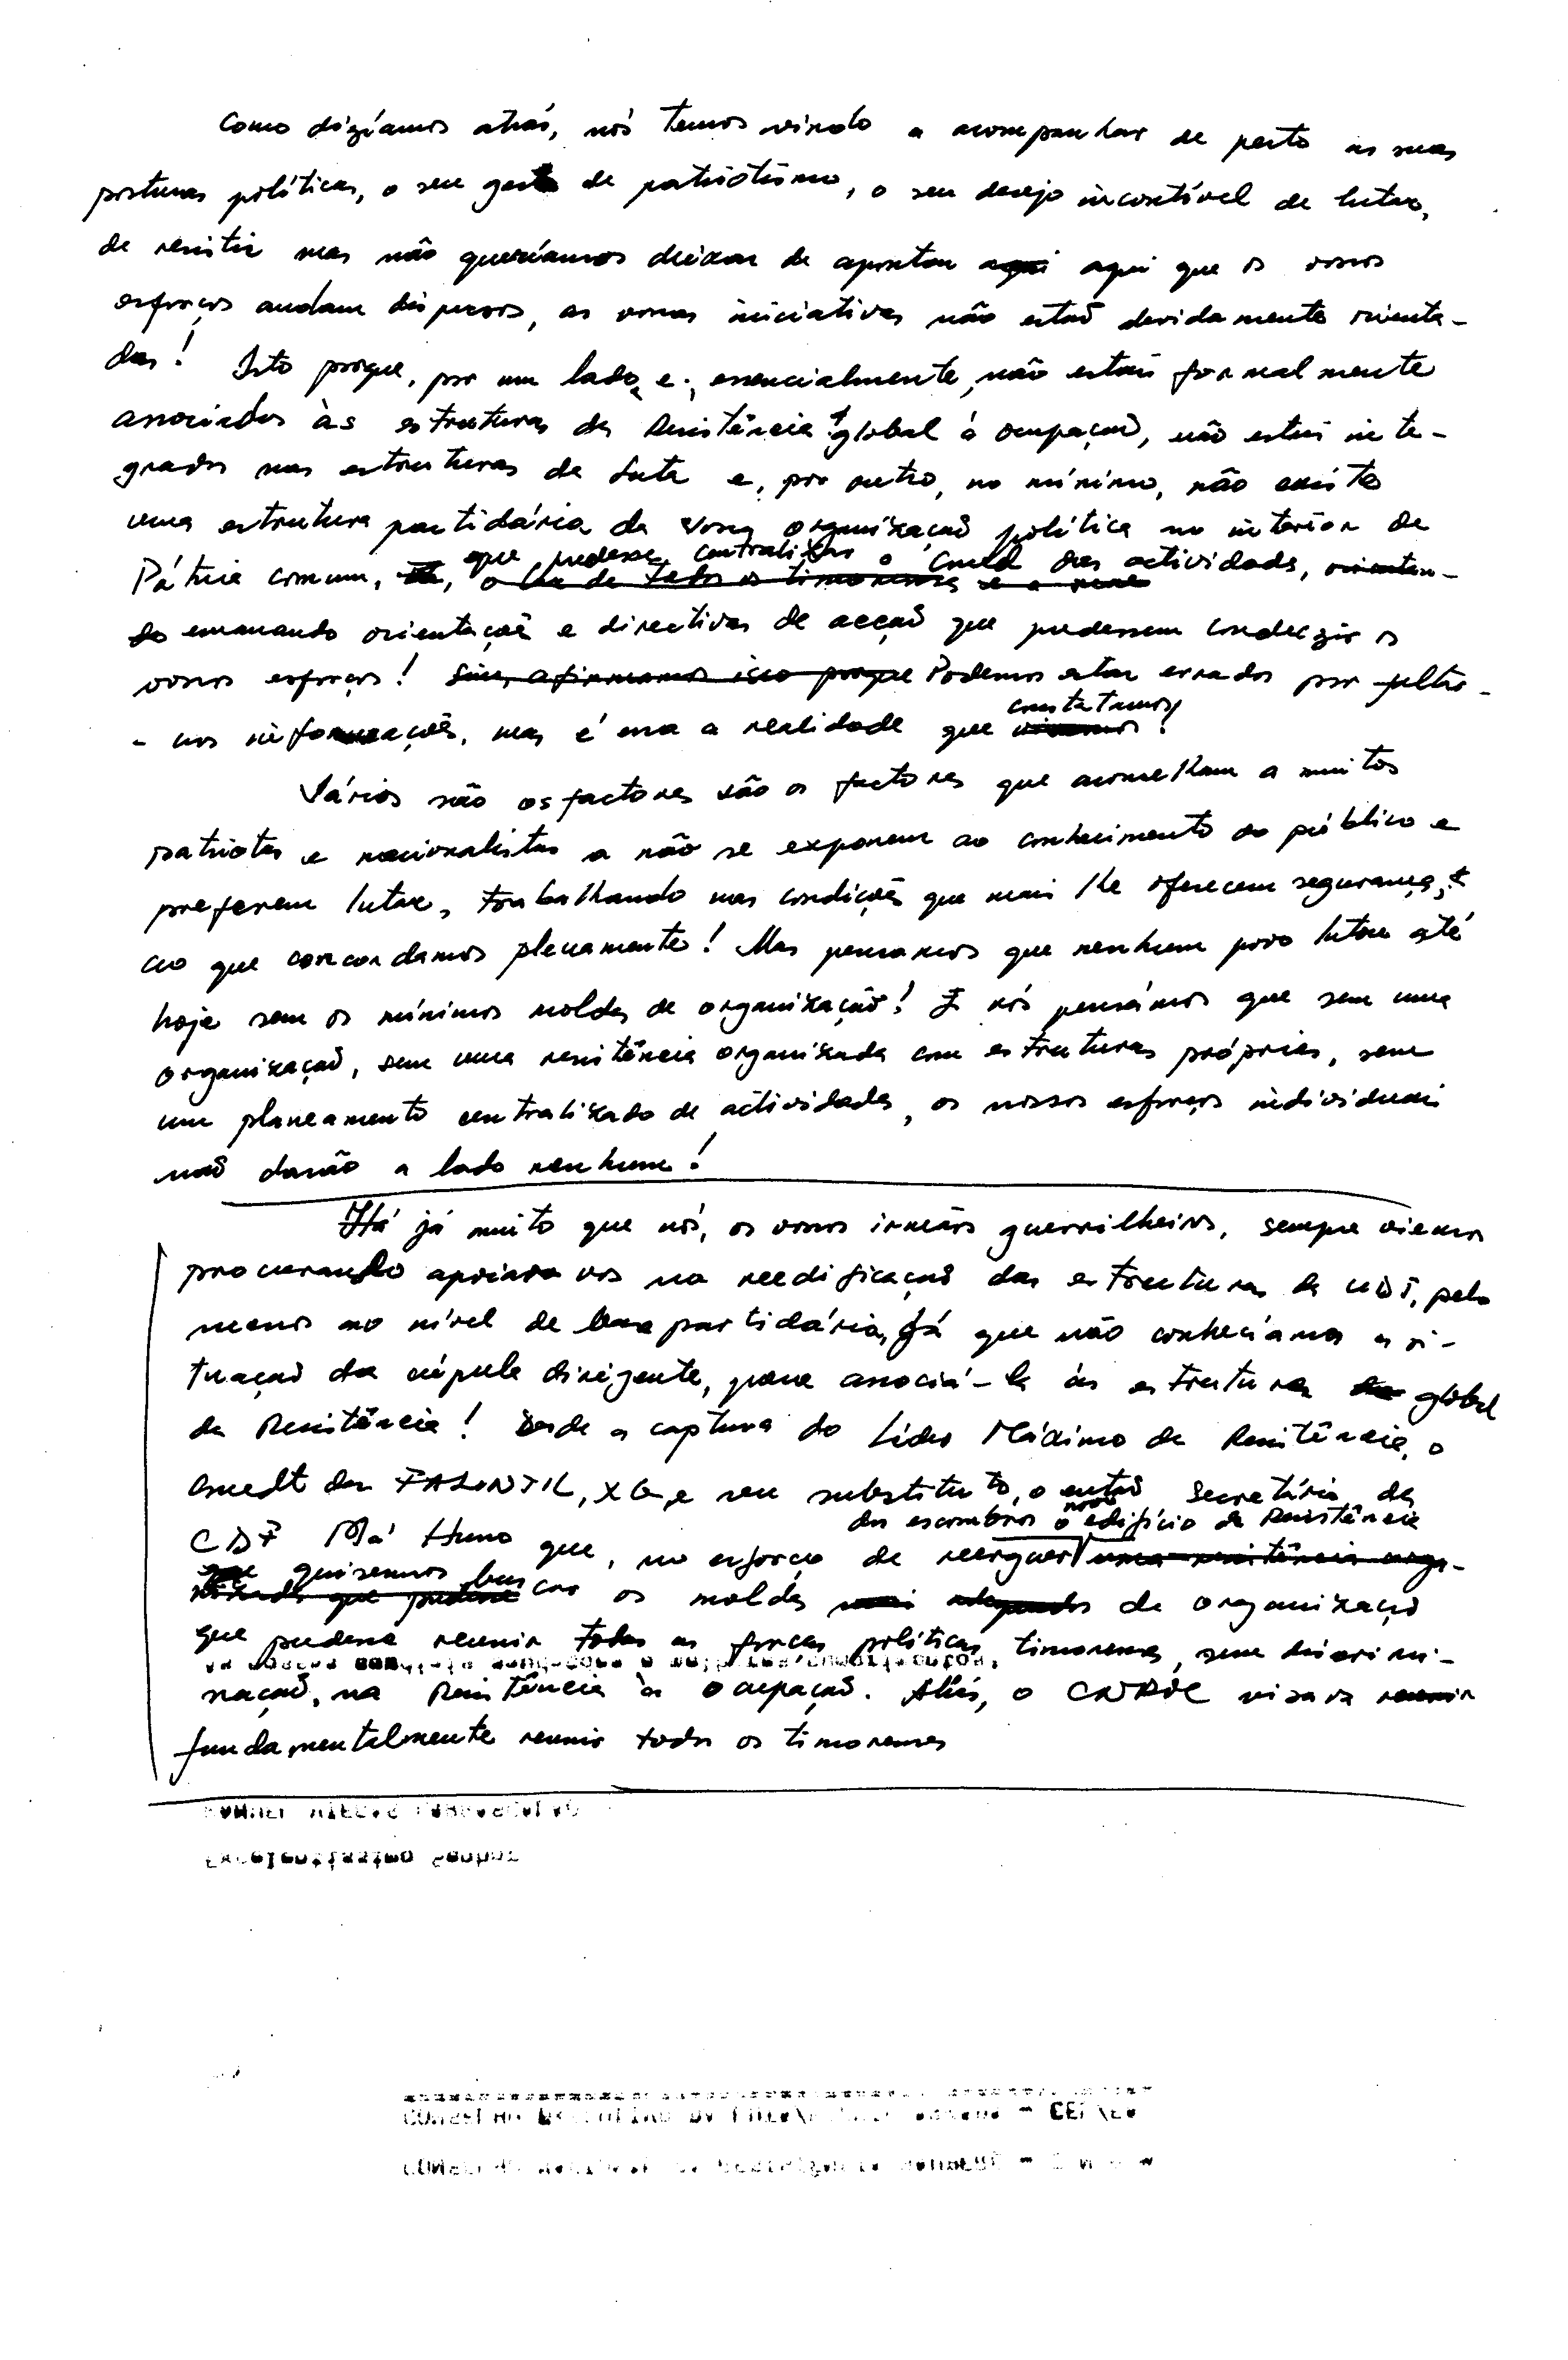 Como dizíamos atrás, nós temos vindo a acompanhar de perto as suas
posturas políticas, o seu gesto de patriotismo, o seu desejo incontível de lutar,
de resistir mas não queríamos deixar de apontar aqui aqui que os vossos
esforços andam dispersos, as vossas iniciativas não estão devidamente orienta-
das! Isto porque, por um lado, e, essencialmente, não estais formalmente
associados às estruturas da Resistência global à ocupação, não estais inte-
grados nas estruturas da Luta e, por outro, no mínimo, não existe
uma estrutura partidária da vossa organização política no interior da
que pudesse centralizar o cmdº das actividades, orientan-
Pátria comum,
do emanando orientações e directivas de acção que pudessem conduzir os
vossos esforços! Sim, afirmamos isso porque Podemos estar errados por falta
constatamos!
- nos informações, mas é essa a realidade que
Vários são os factores são os factores que aconselham a muitos
patriotas e nacionalistas a não se exporem ao conhecimento do público e
preferem lutar, trabalhando nas condições que mais lhe oferecem segurança,
ao que concordamos plenamente! Mas pensamos que nenhum povo lutou até
hoje sem os mínimos moldes de organização! E nós pensamos que sem uma
organização, sem uma resistência organizada com estruturas próprias, sem
um planeamento centralizado de actividades, os nossos esforços individuais
não darão a lado nenhum!
Há já muito que nós, os vossos irmãos guerrilheiros, sempre viemos
procurando apoiar vos na reedificação das estruturas da UDT, pelo
menos ao nível de base partidária, já que não conhecíamos a si-
tuação da cúpula dirigente, para associá-la às estrutura da global
da Resistência! Desde a captura do Líder Máximo da Resistência, o
Cmdt das FALINTIL, XG, e seu substituto, o então Secretário da
dos escombros o novo edifício da Resistência
CDF Má Huno que, no esforço de reerguer uma resistência orga-
quisemos buscar os moldes de organização
que pudesse reunir todas as forças políticas timorenses, sem discrimi-
nação, na Resistência à ocupação. Aliás, o CNRM visava reunir
fundamentalmente reunir todos os timorenses